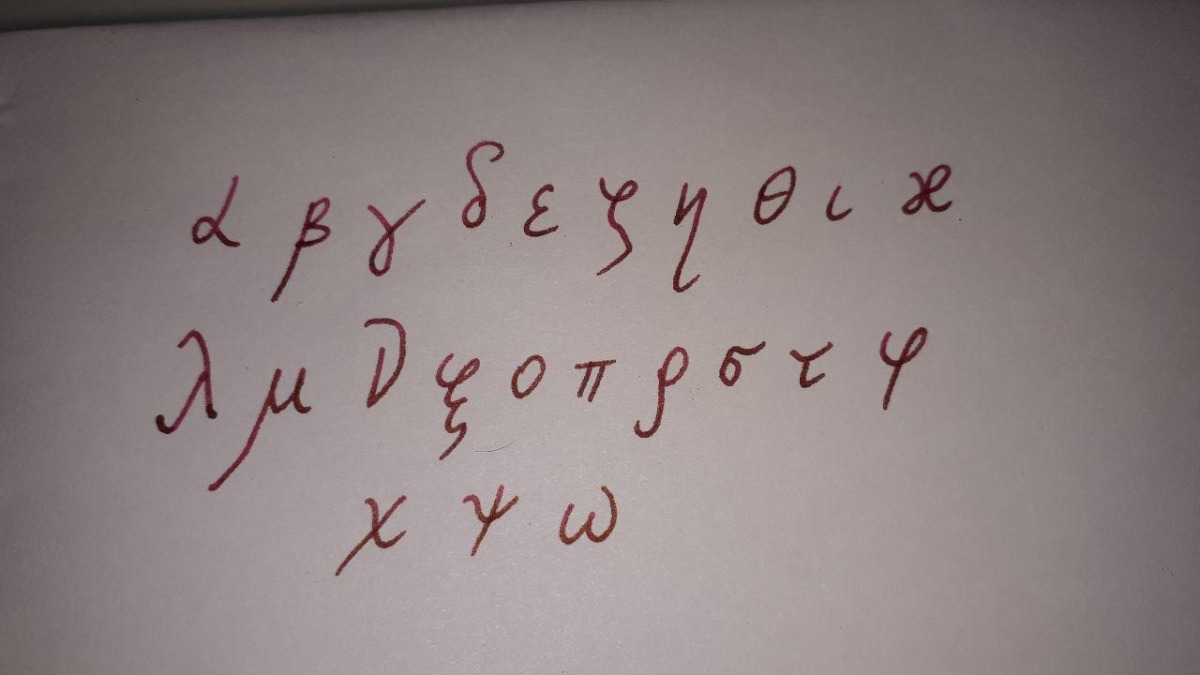 α β γ δ ε ζ η θ ι ϰ
λ μ ν ξ ο π ρ σ τ φ
χ ψ ω